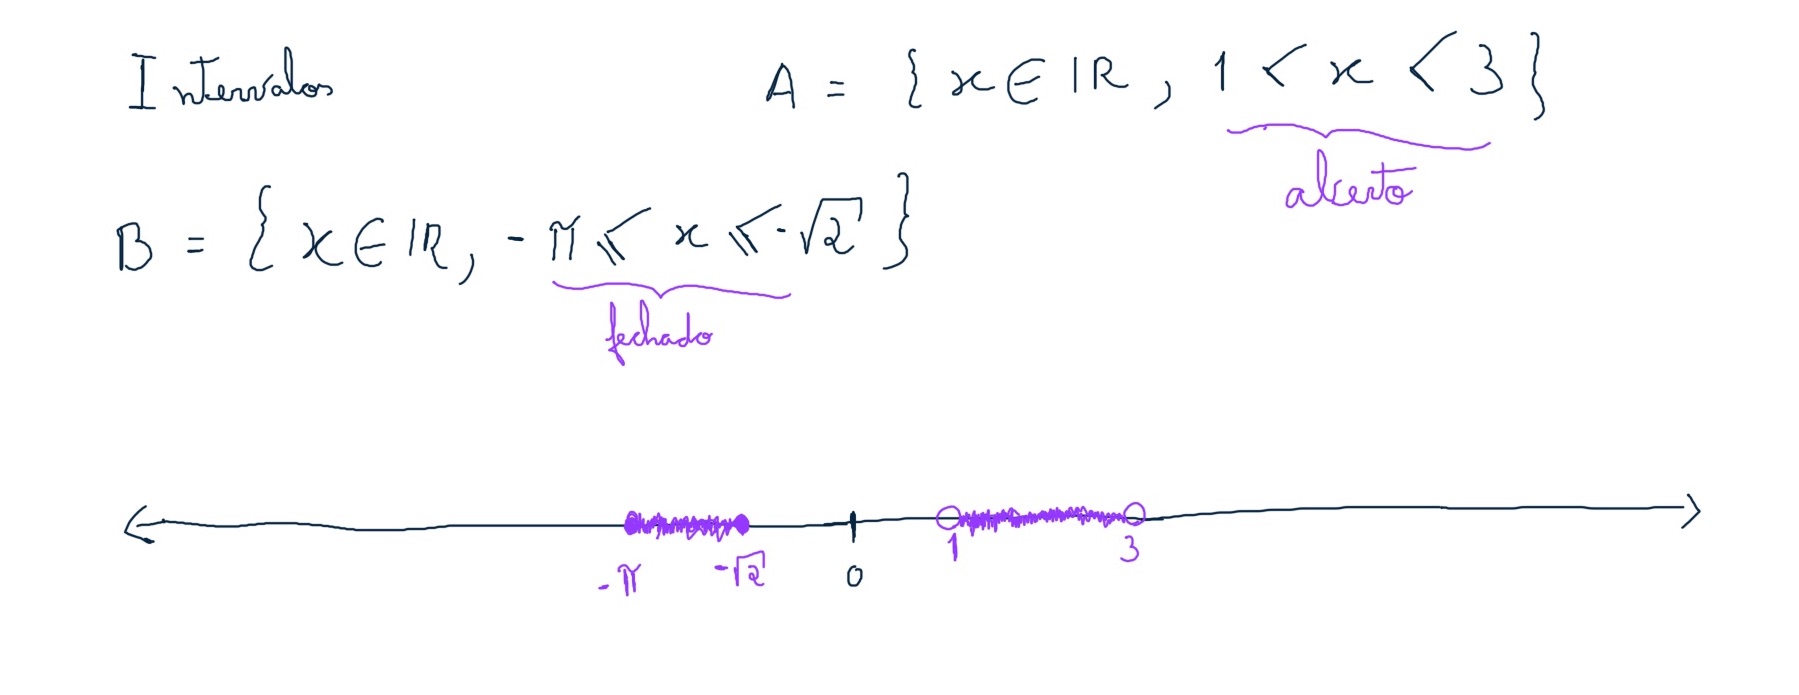 Intervalos
A = { x ∈ ℝ , 1 < x < 3 }
aberto
B = { x ∈ ℝ , - π ⩽ x ⩽ -√2 }
fechado
-π -√2 0 1 3